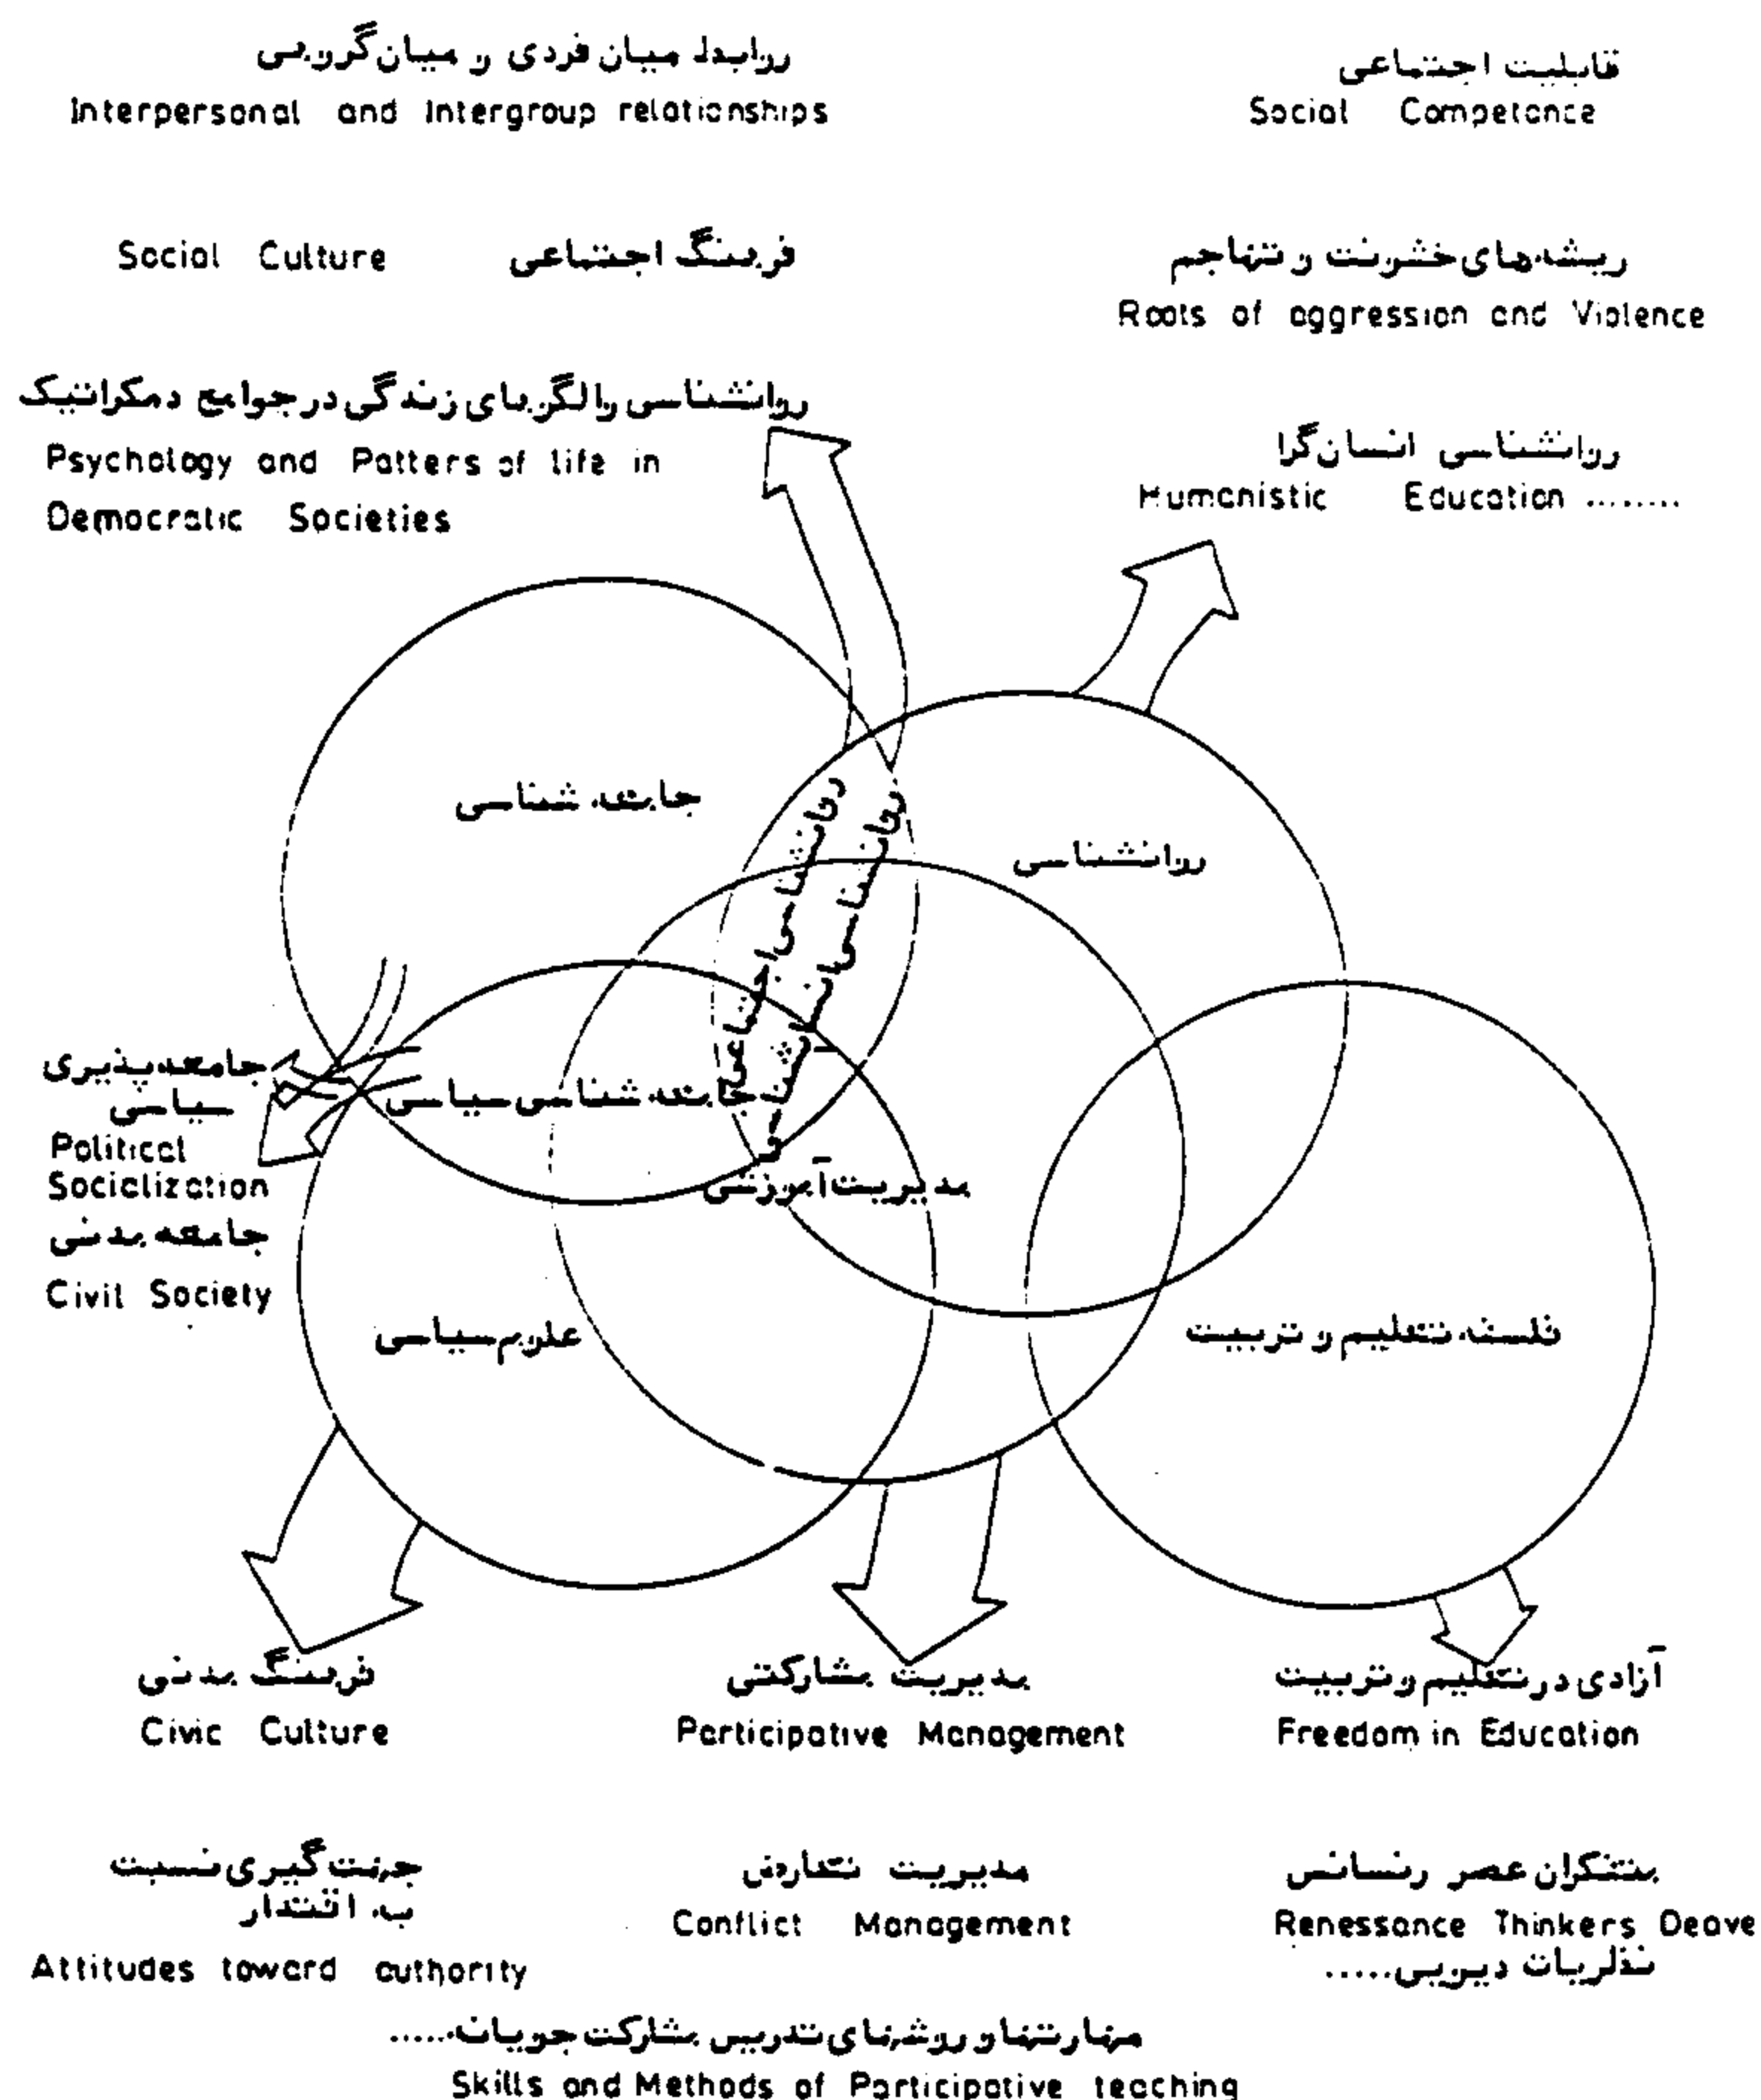 روابط میان فردی و میان گروهی
Interpersonal and Intergroup relationships
قابلیت اجتماعی
Social Competance
Social Culture فرهنگ اجتماعی
ریشه‌های خشونت و تهاجم
Roots of aggression and Violence
روانشناسی و الگوهای زندگی در جوامع دمکراتیک
Psychology and Patters of life in
Democratic Societies
روانشناسی انسان‌گرا
Humanistic Education ........
جامعه شناسی
روانشناسی
روانشناسی اجتماعی
روانشناسی
جامعه‌پذیری
سیاسی
Political
Socialization
جامعه مدنی
Civil Society
جامعه شناسی سیاسی
مدیریت آموزشی
علوم سیاسی
فلسفه تعلیم و تربیت
فرهنگ مدنی
Civic Culture
مدیریت مشارکتی
Participative Management
آزادی در تعلیم و تربیت
Freedom in Education
جهت گیری نسبت
به اقتدار
Attitudes toward authority
مدیریت تعارض
Conflict Management
متفکران عصر رنسانس
Renessance Thinkers Deave
نظریات دیویی.....
مهارتها و روشهای تدریس مشارکت جویانه.....
Skills and Methods of Participative teaching